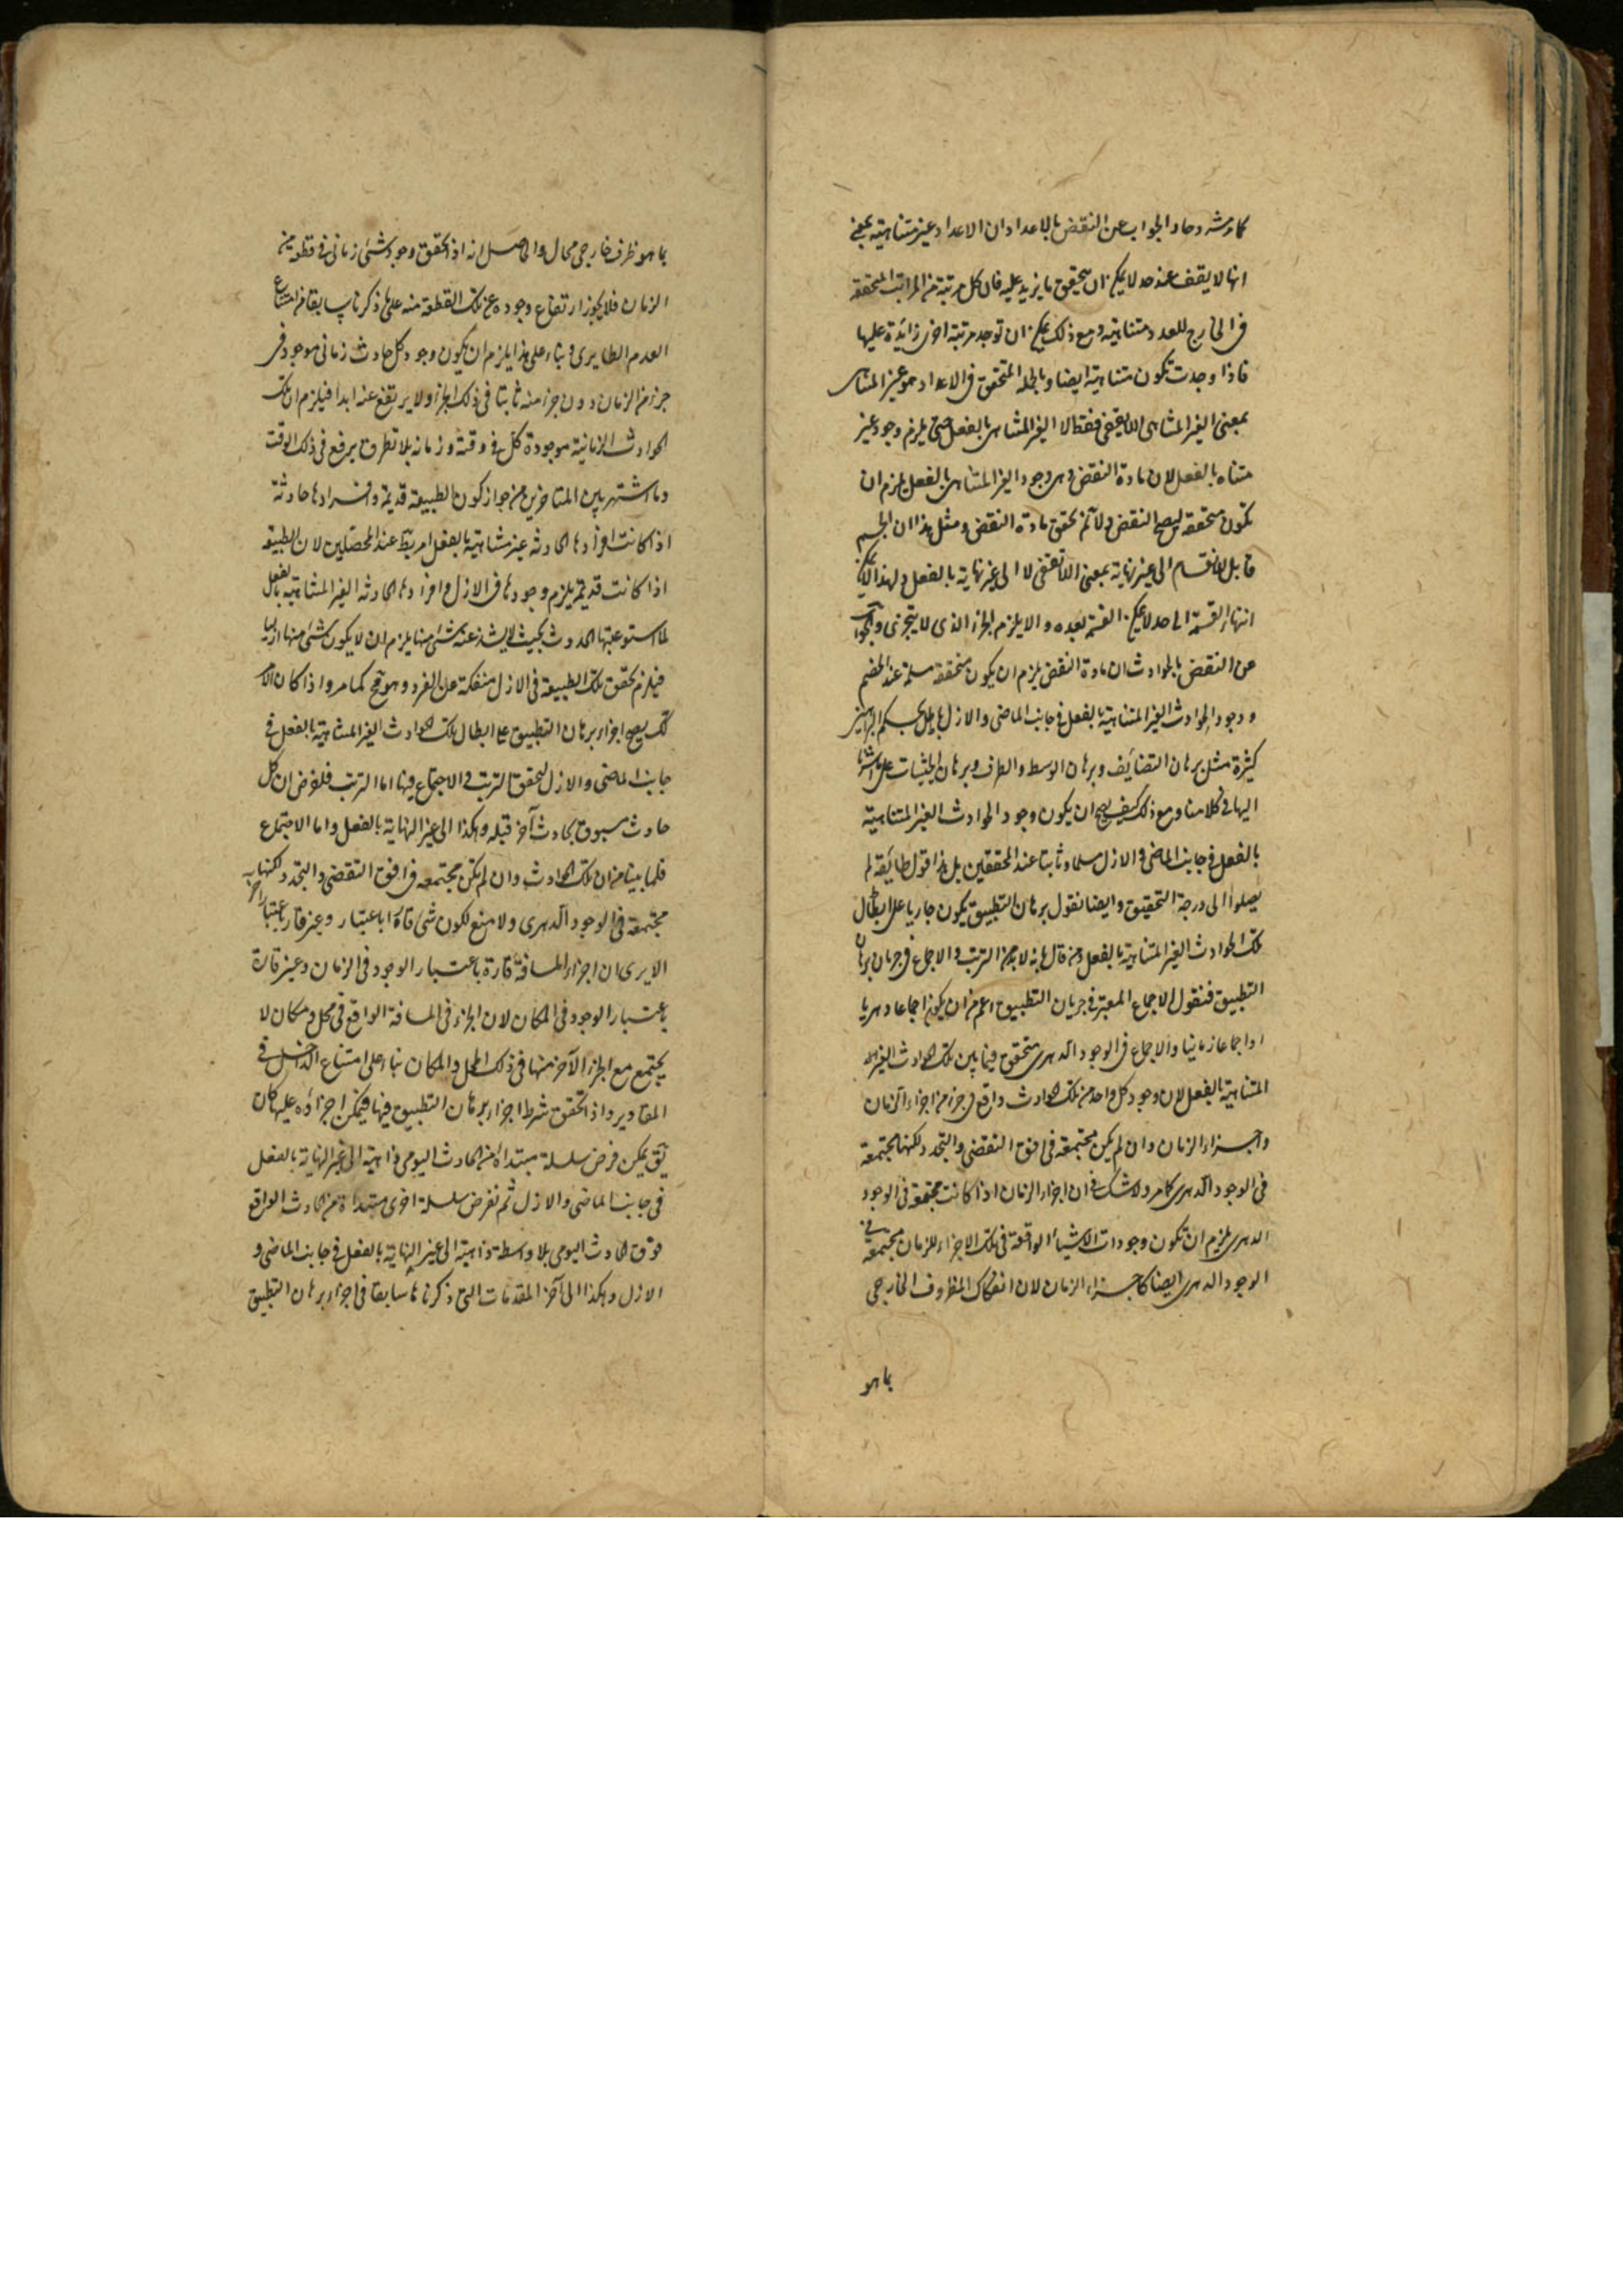 كما مرت و حاد الجواب عن النقض بالاعداد ان الاعداد غير متناهية بمعنى
انها لا يقف عند حد لا يمكن ان يتحقق ما يزيد عليه فان كل مرتبة من المراتب المتحققة
في الخارج للعدد متناهية ومع ذلك يمكن ان توجد مرتبة اخرى زائدة عليها
فاذا وجدت تكون متناهية ايضا وبالجملة المتحقق في الاعداد هو غير المتناهى
بمعنى الغير المتناهى اللايقفى فقط لا الغير المتناهى بالفعل حتى يلزم وجود غير
متناه بالفعل لان مادة النقض وهى وجود الغير المتناهى بالفعل يلزم ان
تكون متحققة ليصح النقض ولا تم تحقق مادة النقض ومثل هذا ان الجسم
قابل للانقسام الى غير نهاية بمعنى اللاتقفى لا الى غير نهاية بالفعل ولهذا لا يمكن
انتهاء القسمة الى حد لا يمكن القسمة بعده والا يلزم الجزء الذى لا يتجزى والجواب
عن النقض بالحوادث ان مادة النقض يلزم ان يكون متحققة مسلمة عند الخصم
ووجود الحوادث الغير المتناهية بالفعل في جانب الماضى والازل باطل بحكم البراهين
كثيرة مثل برهان التضايف وبرهان الوسط والطرف وبرهان الحيثيات على ما اشرنا
اليها في كلامنا ومع ذلك كيف يصح ان يكون وجود الحوادث الغير المتناهية
بالفعل في جانب الماضى والازل مسلما وثابتا عند المحققين بل هذا قول طايفة لم
يصلوا الى درجة التحقيق وايضا نقول برهان التطبيق يكون جاريا على ابطال
تلك الحوادث الغير المتناهية بالفعل ومن قال بانه لا بد من الترتب والاجماع في جريان برهان
التطبيق فنقول الاجماع المعتبر في جريان التطبيق اعم من ان يكون اجماعا دهريا
او اجماعا زمانيا والاجماع في الوجود الدهرى متحقق فيما بين تلك الحوادث الغير
المتناهية بالفعل لان وجود كل واحد من تلك الحوادث واقع في جزء من اجزاء الزمان
واجزاء الزمان وان لم يكن مجتمعة في افق التقضى والتجدد لكنها مجتمعة
في الوجود الدهرى كما مر ولا شك في ان اجزاء الزمان اذا كانت مجتمعة في الوجود
الدهرى يلزم ان تكون وجودات الاشياء الواقعة في تلك الاجزاء للزمان مجتمعة في
الوجود الدهرى ايضا كاجزاء الزمان لان انفكاك المظروف الخارجى
بما هو
بما هو ظرف خارجى محال والحاصل انه اذا تحقق وجود شئ زمانى في قطعة من
الزمان فلا يجوز ارتفاع وجوده عن تلك القطعة منه على ما ذكرنا سابقا من امتناع
العدم الطارى وبناء على هذا يلزم ان يكون وجود كل حادث زمانى موجود في
جزء من الزمان دون جزء منه ثابتا في ذلك الجزء ولا يرتفع عنه ابدا فيلزم ان تلك
الحوادث الزمانية موجودة كل في وقته وزمانه بلا تطرق رفع في ذلك الوقت
وما اشتهر بين المتاخرين من جواز كون الطبيعة قديمة وافرادها حادثة
اذا كانت افرادها الحادثة غير متناهية بالفعل امر عند المحصلين لان الطبيعة
اذا كانت قديمة يلزم وجودها في الازل وافرادها الحادثة الغير المتناهية بالفعل
لما استوعبتها الحدوث بحيث لا يشذ عنه شئ منها يلزم ان لا يكون شئ منها ازليا
فيلزم تحقق تلك الطبيعة في الازل منفكة عن الفرد وهو مح كما مر واذا كان الامر
كك يصح اجزاء برهان التطبيق على ابطال تلك الحوادث الغير المتناهية بالفعل في
جانب الماضى والازل لتحقق الترتب والاجتماع فيها اما الترتب فلفرض ان كل
حادث مسبوق بحادث آخر قبله وهكذا الى غير النهاية بالفعل واما الاجتماع
فلما بينا من ان تلك الحوادث وان لم تكن مجتمعة في افق التقضى والتجدد لكنها
مجتمعة في الوجود الدهرى ولا منع لكون شئ قارا باعتبار وغير قار باعتبار آخر
الا يرى ان اجزاء المسافة قارة باعتبار الوجود في الزمان وغير قارة
باعتبار الوجود في المكان لان الجزء في المسافة الواقع في محل ومكان لا
يجتمع مع الجزء الآخر منها في ذلك المحل والمكان بناء على امتناع التداخل في
المقادير واذا تحقق شرط اجزاء برهان التطبيق فيها فيمكن اجراؤه عليها كان
يق يمكن فرض سلسلة مبتدأة من الحادث اليومى ذاهبة الى غير النهاية بالفعل
في جانب الماضى والازل ثم نفرض سلسلة اخرى مبتدأة من الحادث الواقع
فوق الحادث اليومى بلا واسطة ذاهبة الى غير النهاية بالفعل في جانب الماضى و
الازل وهكذا الى آخر المقدمات التى ذكرناها سابقا في اجزاء برهان التطبيق